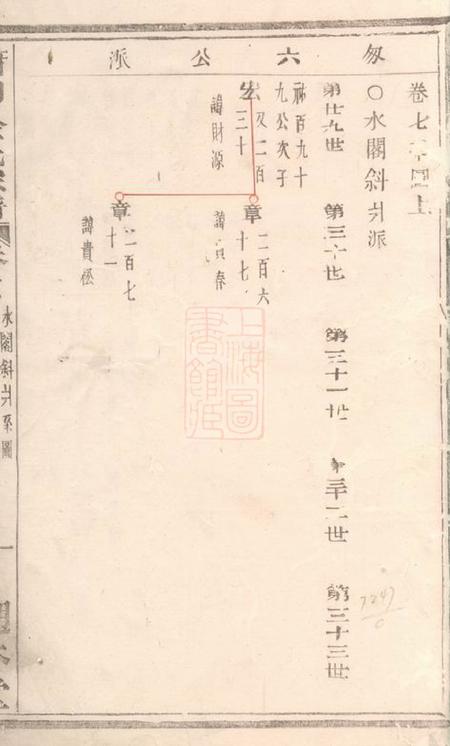 六公派
卷七十四上
○水閣斜爿派
第廿九世
第三十世
第三十一世
第三十二世
第三十三世
祘百九十
九公次子
公又二百
三十
諱財源
章二百六
十七
章二百七
十一
諱貴松
水閣斜爿系圖
一
上海圖書館藏
7247